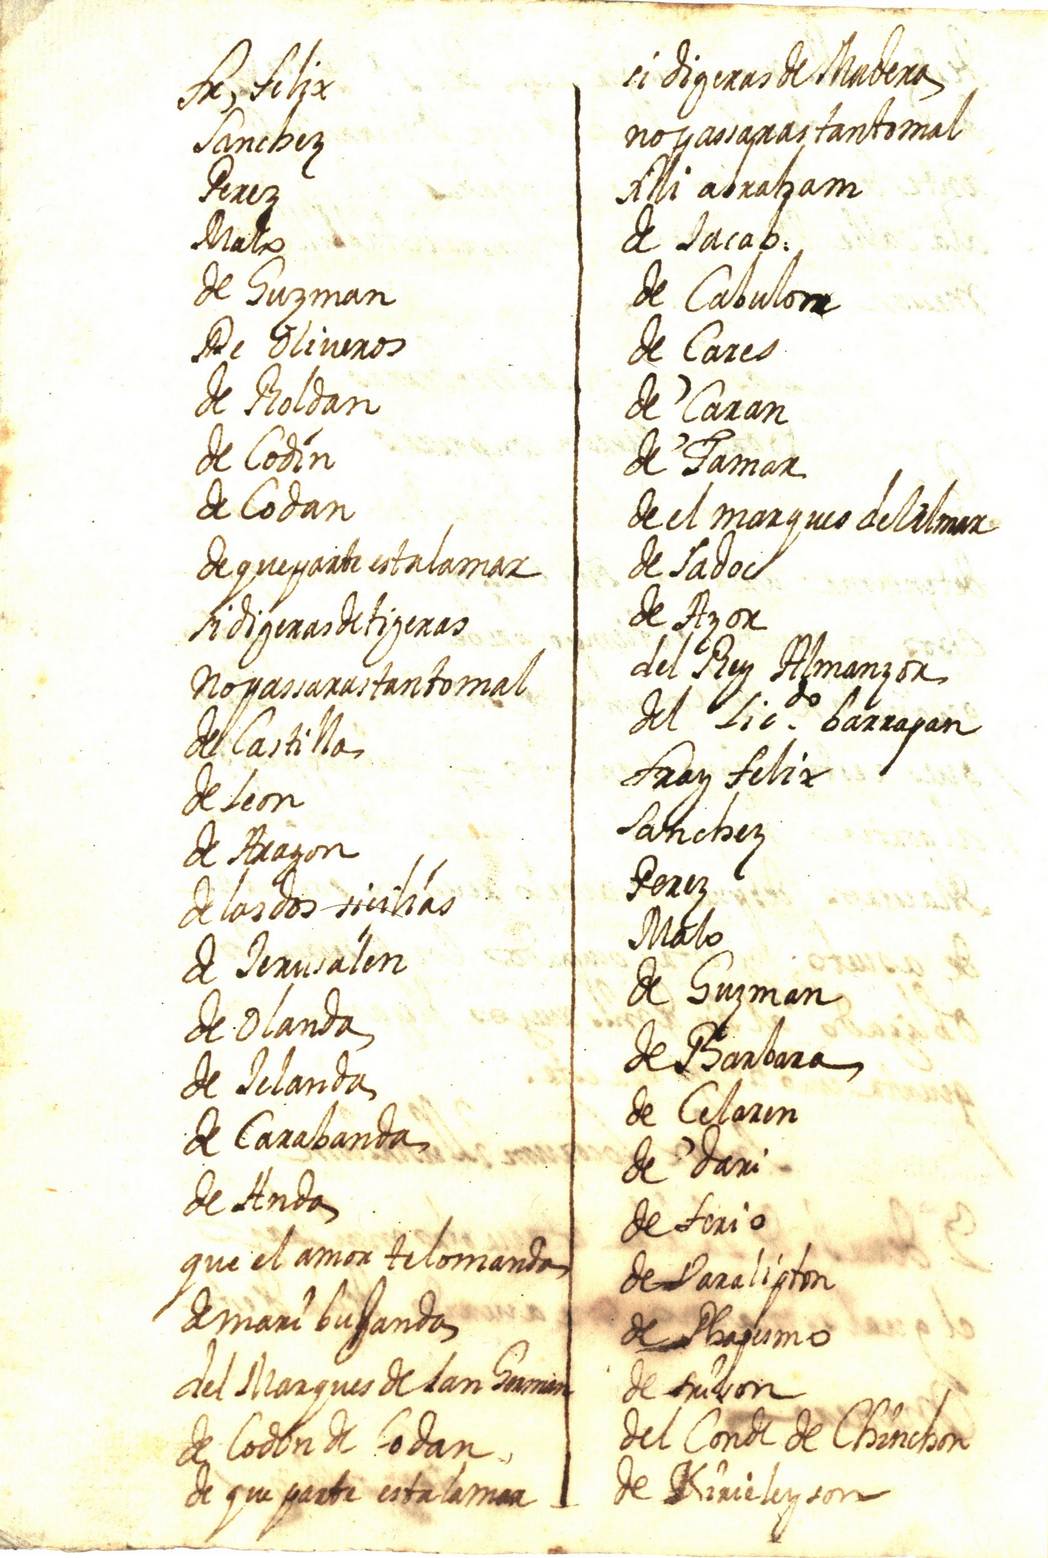 Fr, Felix
Sanchez
Perez
Malo
de Guzman
De Oliveros
de Roldan
de Codín
de Codan
de que parte esta la mar
si digeras de tigeras
no passaras tanto mal
de Castilla
de Leon
de Aragon
de las dos sicilias
de Jerusalen
de Olanda
de Jelanda
de Carabanda
de Anda
que el amor te lo manda
de mari bulanda
del Marques de San German
de Codin de Codan
de que parte esta la mar
si digeras de Madera
no passaras tanto mal
Alli abraham
de Jacob.
de Cabulon
de Cares
de Caran
de Tamar
de el marques del Almar
de Sadoc
de Azor
del Rey Almanzor
del Lic.do barragan
Fray Felix
Sanchez
Perez
Malo
de Guzman
de Barbara
de Celaren
de Dari
de ferio
de Baralipton
de Phapesmo
de frison
del Conde de Chinchon
de Kirieleyson